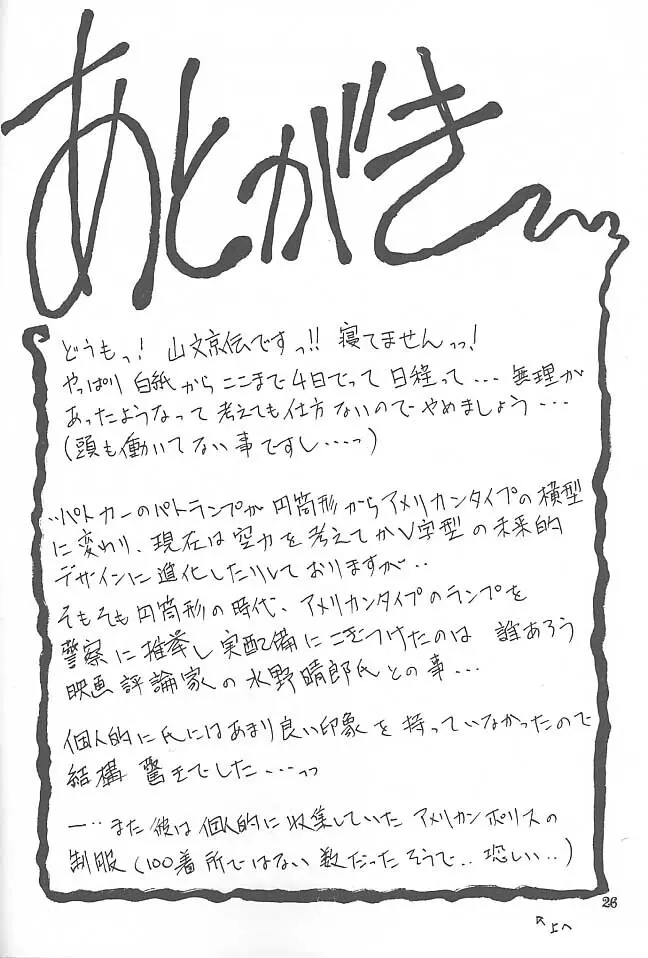 あとがき
どうもっ! 山文京伝ですっ!! 寝てませんっっ!
やっぱり 白紙から ここまで 4日でって 日程って・・・ 無理が
あったようなって 考えても仕方ないので やめましょう・・・
(頭も働いてない事ですし・・・・っ)
・・パトカーのパトランプが 円筒形からアメリカンタイプの横型
に変わり、現在は空力を考えてかV字型の未来的
デザインに進化したりしておりますが・・
そもそも円筒形の時代、アメリカンタイプのランプを
警察に推挙し実配備にこぎつけたのは 誰あろう
映画評論家の水野晴郎氏との事・・・
個人的に氏にはあまり良い印象を持っていなかったので
結構 驚きでした・・・・っっ
ー・・また彼は個人的に収集していた アメリカンポリスの
制服(100着所ではない数だったそうで・・恐しい・・)
26
↖上へ